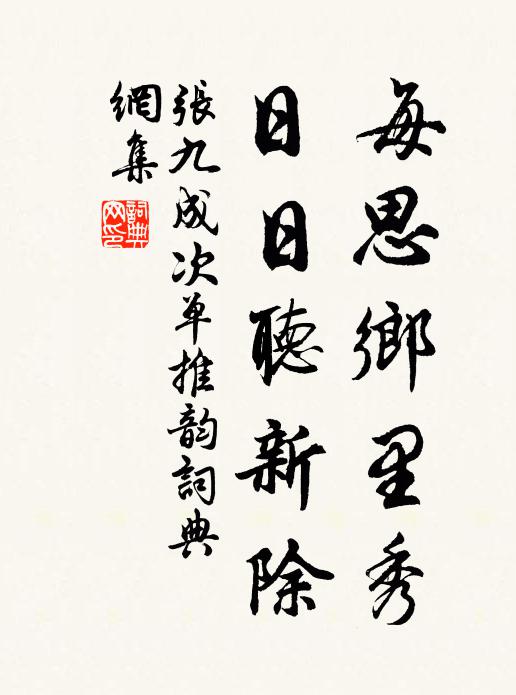 每思鄉里秀
日日聽新除
張九成次单推韵詞典
網集
詞典
网印